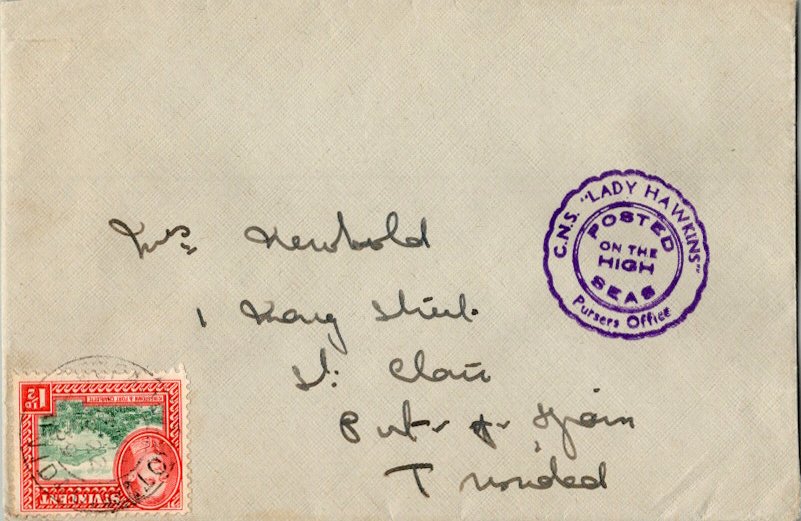 Mrs Newbold
1 Mary Street
St: Clair
Port of Spain
Trinidad
C.N.S. "LADY HAWKINS"
POSTED
ON THE
HIGH
SEAS
Pursers Office
1½d
KINGSTOWN & FORT CHARLOTTE
ST VINCENT